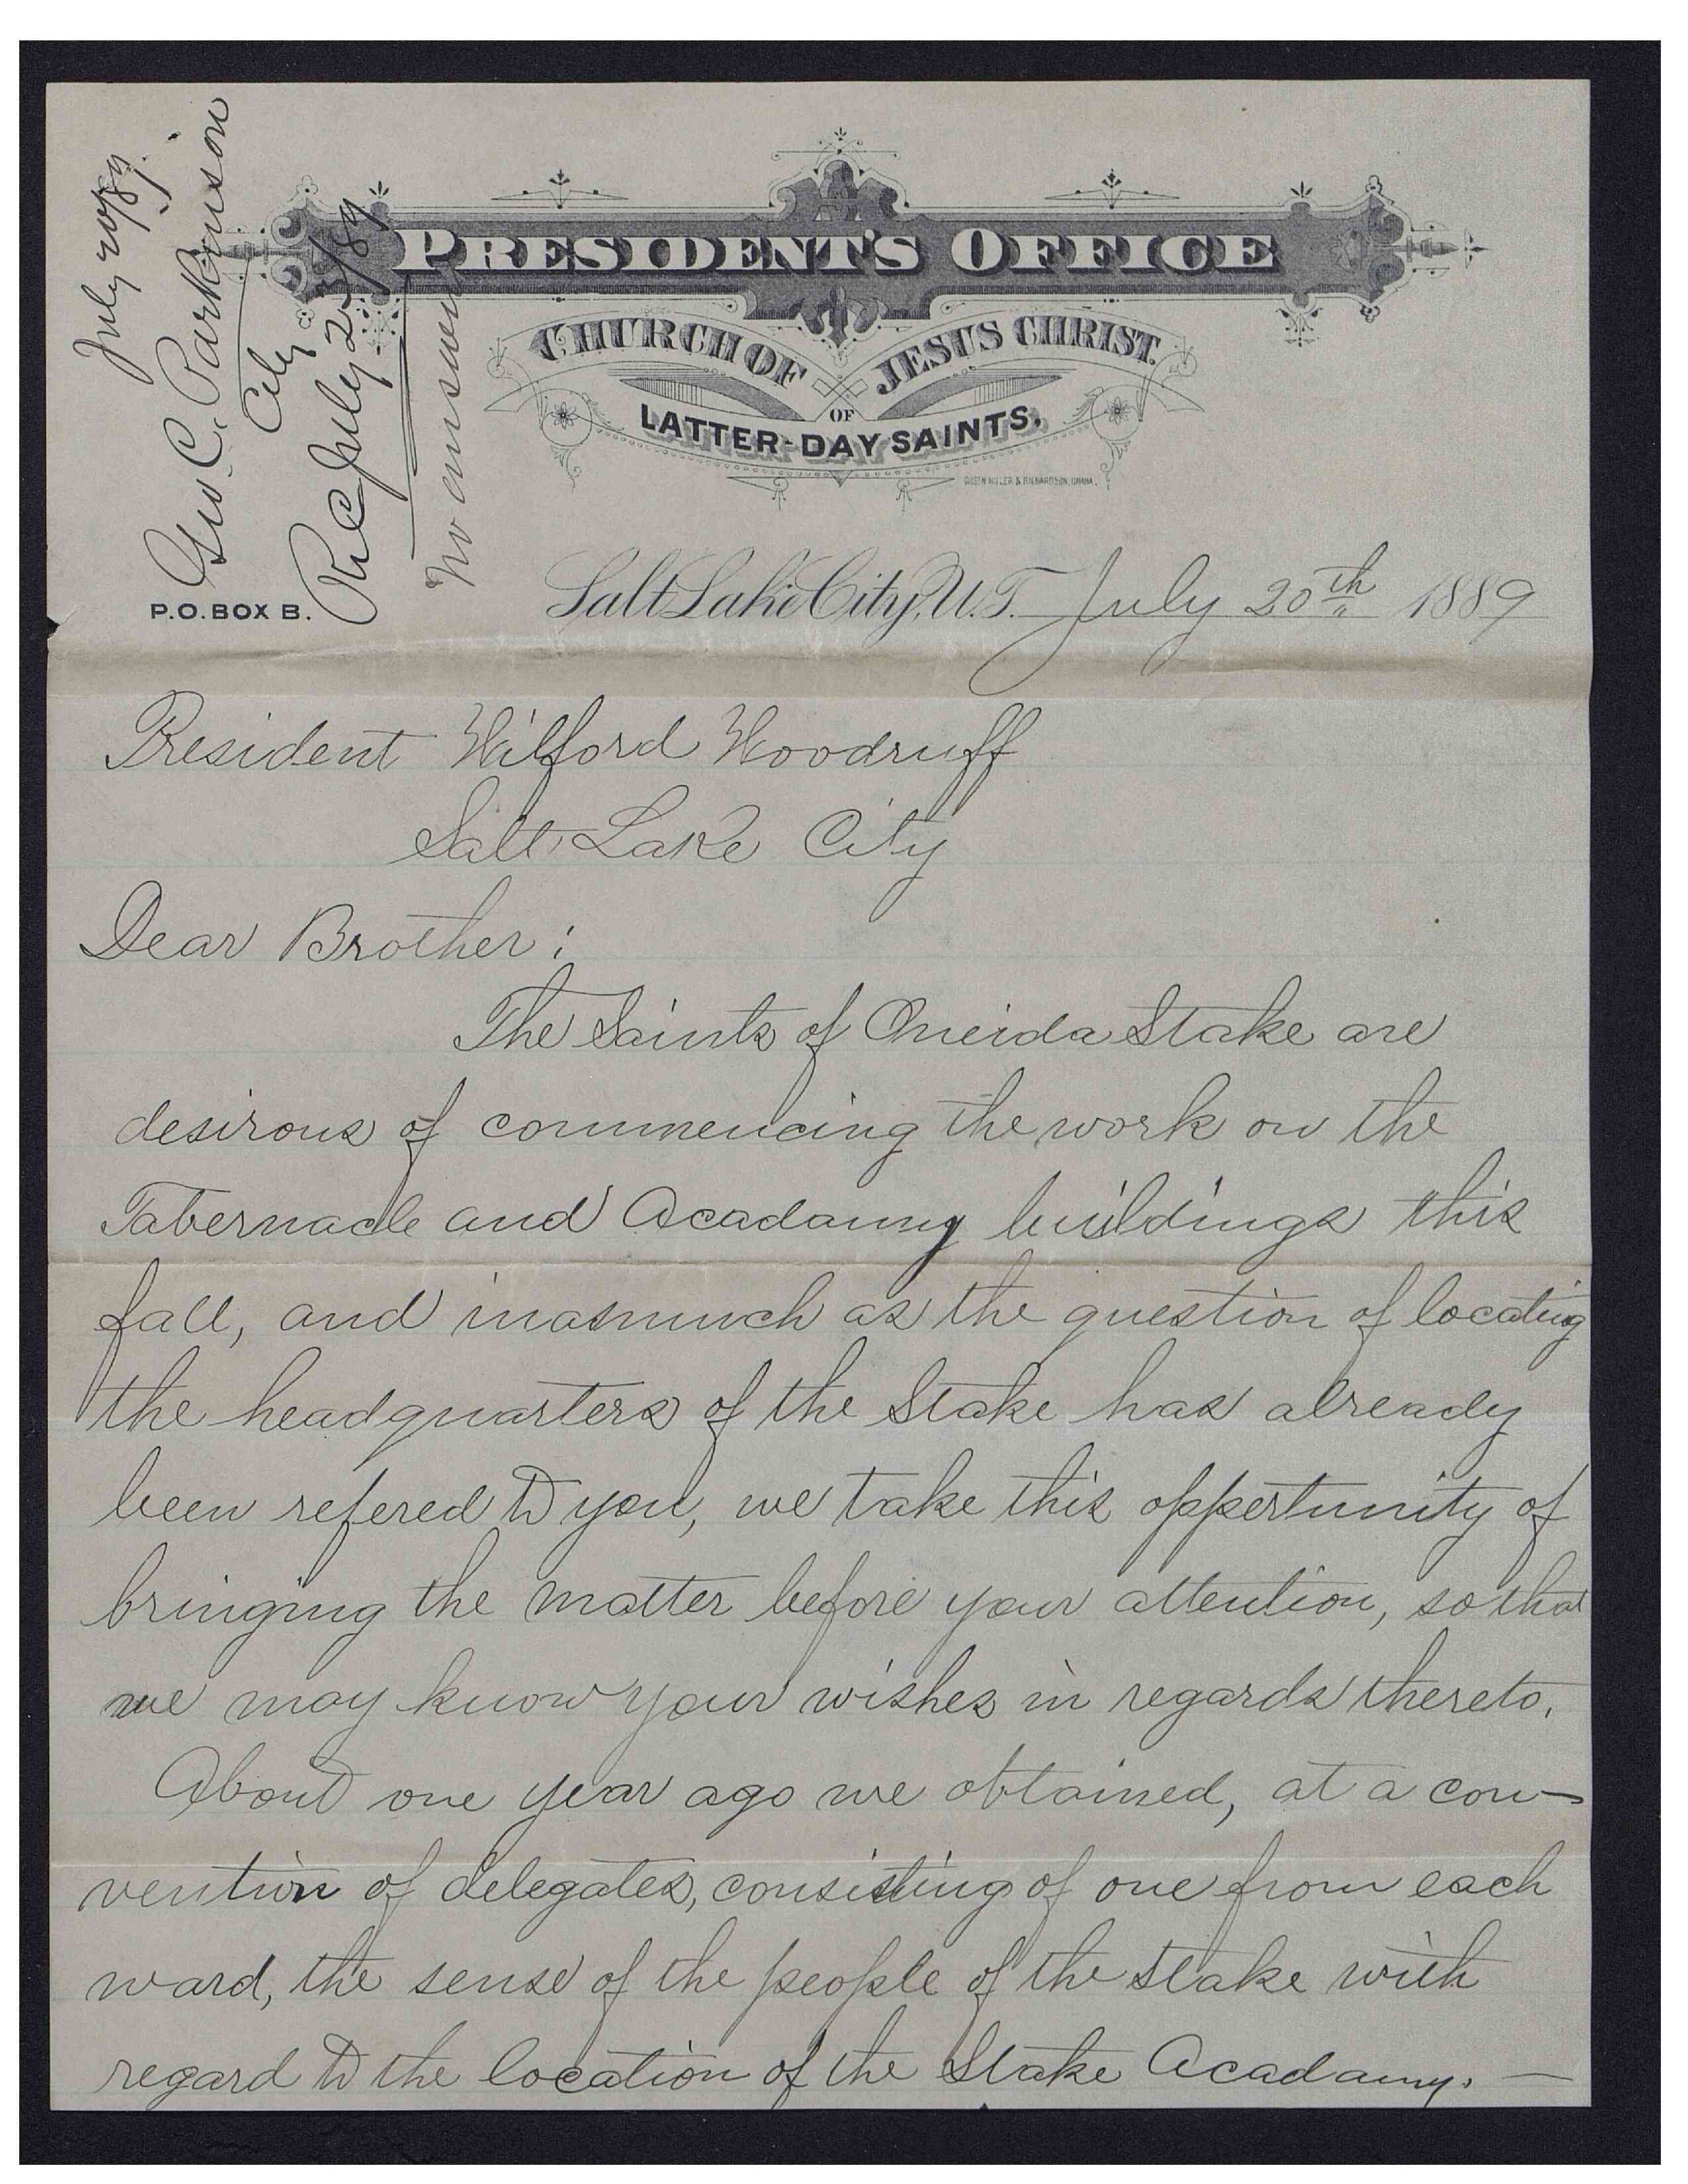 July 20/89.
Geo. C. Parkinson
City
Rec July 23/89
No answer
PRESIDENT'S OFFICE
CHURCH OF JESUS CHRIST
OF
LATTER-DAY SAINTS.
P.O. BOX B.
Salt Lake City, U.T. July 20th 1889
President Wilford Woodruff
Salt Lake City
Dear Brother:
The Saints of Oneida Stake are
desirous of commencing the work on the
Tabernacle and Acadamy buildings this
fall, and inasmuch as the question of locating
the headquarters of the Stake has already
been refered to you, we take this oppertunity of
bringing the matter before your attention, so that
we may know your wishes in regards thereto.
About one year ago we obtained, at a con-
vention of delegates, consisting of one from each
ward, the sense of the people of the stake with
regard to the location of the Stake Acadamy. —